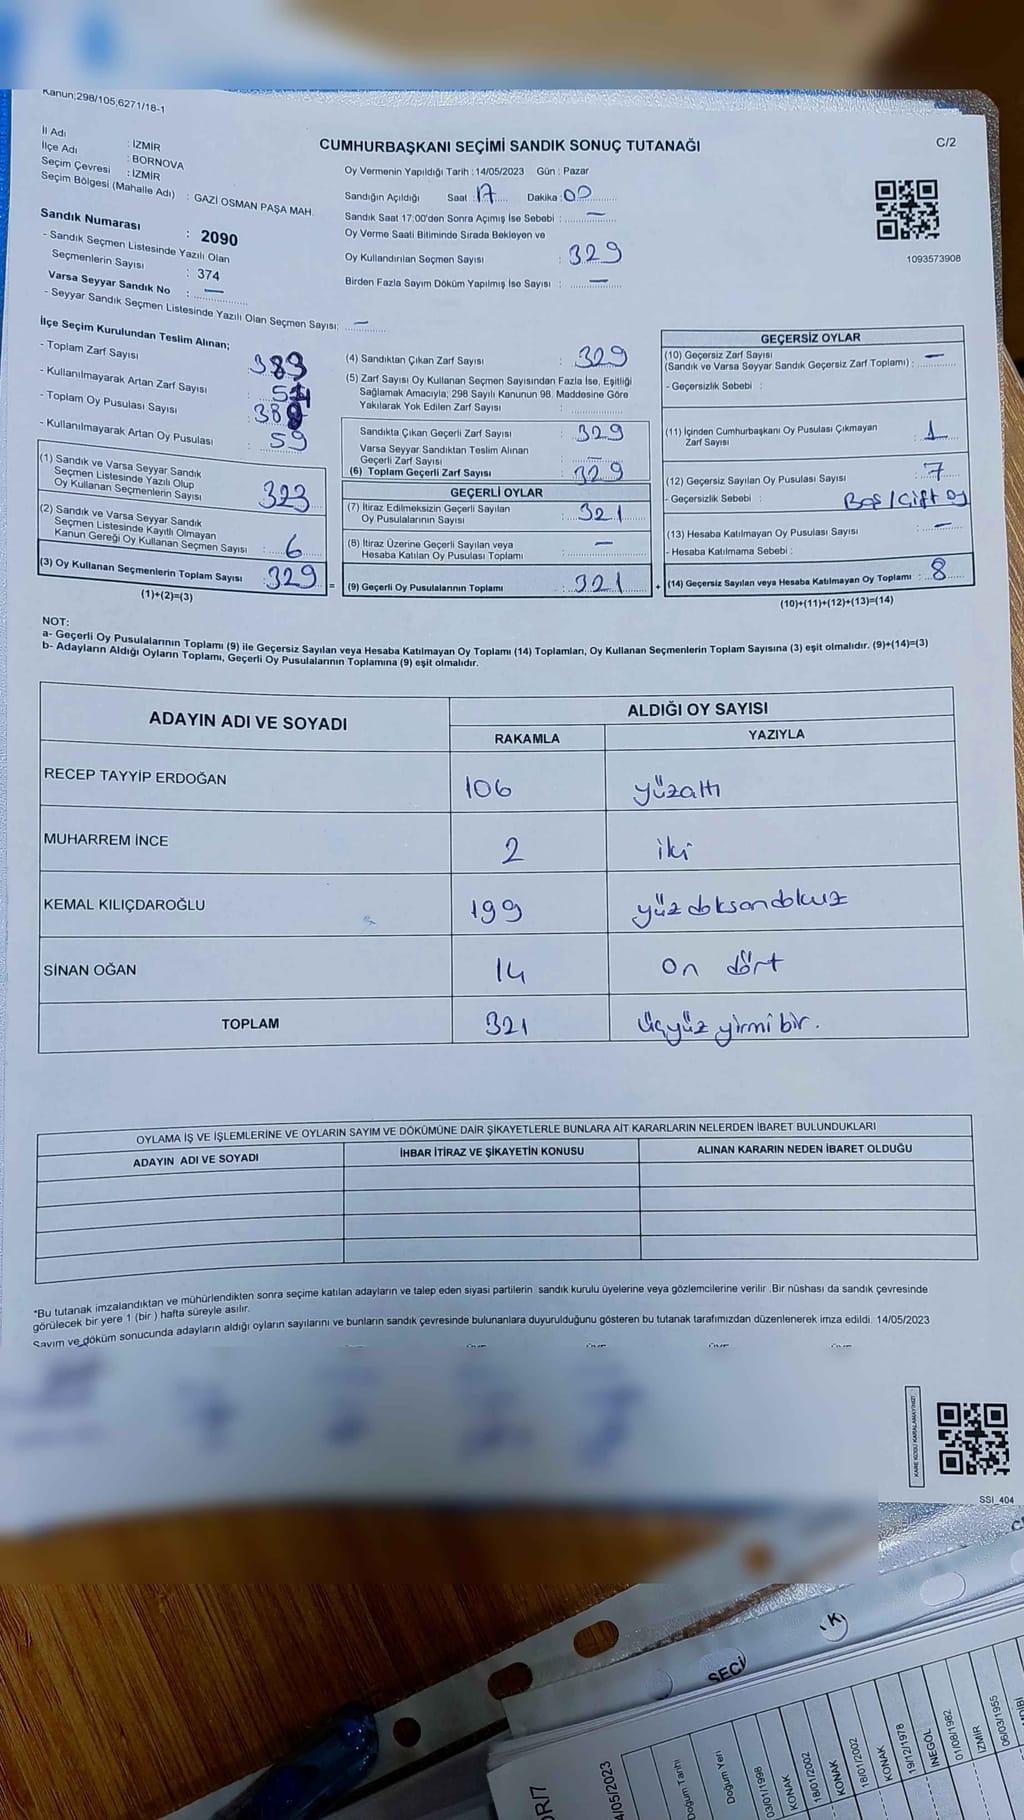 Kanun;298/105;6271/18-1
İl Adı : İZMİR
İlçe Adı : BORNOVA
Seçim Çevresi : İZMİR
Seçim Bölgesi (Mahalle Adı) : GAZİ OSMAN PAŞA MAH.
Sandık Numarası : 2090
- Sandık Seçmen Listesinde Yazılı Olan
Seçmenlerin Sayısı : 374
Varsa Seyyar Sandık No : —
- Seyyar Sandık Seçmen Listesinde Yazılı Olan Seçmen Sayısı: —
CUMHURBAŞKANI SEÇİMİ SANDIK SONUÇ TUTANAĞI
C/2
Oy Vermenin Yapıldığı Tarih : 14/05/2023 Gün : Pazar
Sandığın Açıldığı Saat : 17 Dakika : 00
Sandık Saat 17:00'den Sonra Açımış İse Sebebi : —
Oy Verme Saati Bitiminde Sırada Bekleyen ve
Oy Kullandırılan Seçmen Sayısı : 329
Birden Fazla Sayım Döküm Yapılmış İse Sayısı : —
1093573908
İlçe Seçim Kurulundan Teslim Alınan;
- Toplam Zarf Sayısı : 383
- Kullanılmayarak Artan Zarf Sayısı :
- Toplam Oy Pusulası Sayısı :
- Kullanılmayarak Artan Oy Pusulası : 59
(1) Sandık ve Varsa Seyyar Sandık
Seçmen Listesinde Yazılı Olup
Oy Kullanan Seçmenlerin Sayısı : 323
(2) Sandık ve Varsa Seyyar Sandık
Seçmen Listesinde Kayıtlı Olmayan
Kanun Gereği Oy Kullanan Seçmen Sayısı : 6
(3) Oy Kullanan Seçmenlerin Toplam Sayısı : 329
(1)+(2)=(3)
=
(4) Sandıktan Çıkan Zarf Sayısı : 329
(5) Zarf Sayısı Oy Kullanan Seçmen Sayısından Fazla İse, Eşitliği
Sağlamak Amacıyla; 298 Sayılı Kanunun 98. Maddesine Göre
Yakılarak Yok Edilen Zarf Sayısı :
Sandıkta Çıkan Geçerli Zarf Sayısı : 329
Varsa Seyyar Sandıktan Teslim Alınan
Geçerli Zarf Sayısı : —
(6) Toplam Geçerli Zarf Sayısı : 329
GEÇERLİ OYLAR
(7) İtiraz Edilmeksizin Geçerli Sayılan
Oy Pusulalarının Sayısı : 321
(8) İtiraz Üzerine Geçerli Sayılan veya
Hesaba Katılan Oy Pusulası Toplamı : —
(9) Geçerli Oy Pusulalarının Toplamı : 321
+
GEÇERSİZ OYLAR
(10) Geçersiz Zarf Sayısı
(Sandık ve Varsa Seyyar Sandık Geçersiz Zarf Toplamı) : —
- Geçersizlik Sebebi :
(11) İçinden Cumhurbaşkanı Oy Pusulası Çıkmayan
Zarf Sayısı : 1
(12) Geçersiz Sayılan Oy Pusulası Sayısı : 7
- Geçersizlik Sebebi : Boş / Çift oy
(13) Hesaba Katılmayan Oy Pusulası Sayısı : —
- Hesaba Katılmama Sebebi :
(14) Geçersiz Sayılan veya Hesaba Katılmayan Oy Toplamı : 8
(10)+(11)+(12)+(13)=(14)
NOT:
a- Geçerli Oy Pusulalarının Toplamı (9) ile Geçersiz Sayılan veya Hesaba Katılmayan Oy Toplamı (14) Toplamları, Oy Kullanan Seçmenlerin Toplam Sayısına (3) eşit olmalıdır. (9)+(14)=(3)
b- Adayların Aldığı Oyların Toplamı, Geçerli Oy Pusulalarının Toplamına (9) eşit olmalıdır.
ADAYIN ADI VE SOYADI ALDIĞI OY SAYISI
RAKAMLA YAZIYLA
RECEP TAYYİP ERDOĞAN 106 yüzaltı
MUHARREM İNCE 2 iki
KEMAL KILIÇDAROĞLU 199 yüz doksandokuz
SİNAN OĞAN 14 on dört
TOPLAM 321 üçyüz yirmi bir.
OYLAMA İŞ VE İŞLEMLERİNE VE OYLARIN SAYIM VE DÖKÜMÜNE DAİR ŞİKAYETLERLE BUNLARA AİT KARARLARIN NELERDEN İBARET BULUNDUKLARI
ADAYIN ADI VE SOYADI İHBAR İTİRAZ VE ŞİKAYETİN KONUSU ALINAN KARARIN NEDEN İBARET OLDUĞU
*Bu tutanak imzalandıktan ve mühürlendikten sonra seçime katılan adayların ve talep eden siyasi partilerin sandık kurulu üyelerine veya gözlemcilerine verilir .Bir nüshası da sandık çevresinde
görülecek bir yere 1 (bir ) hafta süreyle asılır.
Sayım ve döküm sonucunda adayların aldığı oyların sayılarını ve bunların sandık çevresinde bulunanlara duyurulduğunu gösteren bu tutanak tarafımızdan düzenlenerek imza edildi. 14/05/2023
KARE KODU KARALAMAYINIZ!
SSI_404
SEÇİ
K
4/05/2023
Doğum Tarihi
Doğum Yeri
03/01/1998
KONAK
18/01/2002
KONAK
18/01/2002
KONAK
19/12/1978
İNEGÖL
01/08/1982
İZMİR
06/03/1955